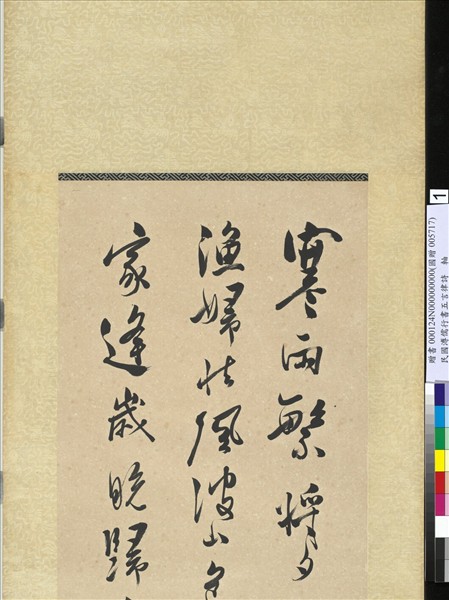 寒雨繁將夕
漁婦怯風波山
家逢歲晚歸
1
贈書 000124N000000000(國贈 005717)
民國溥儒行書五言律詩 軸